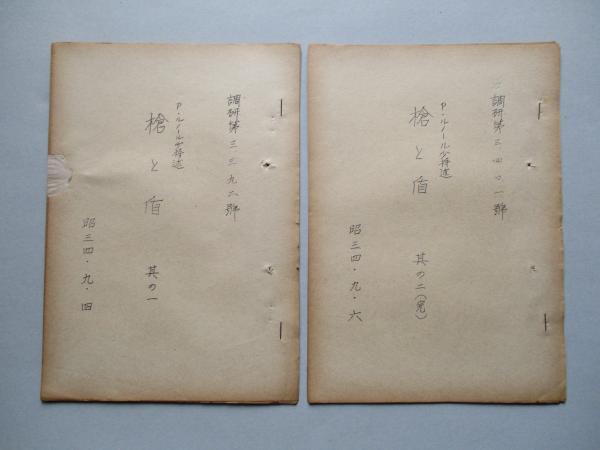 調研第三三九二號
P・ルノール少将述
槍と盾 其の一
昭三四・九・四
調研第三四〇一號
P・ルノール少将述
槍と盾 其の二(完)
昭三四・九・六